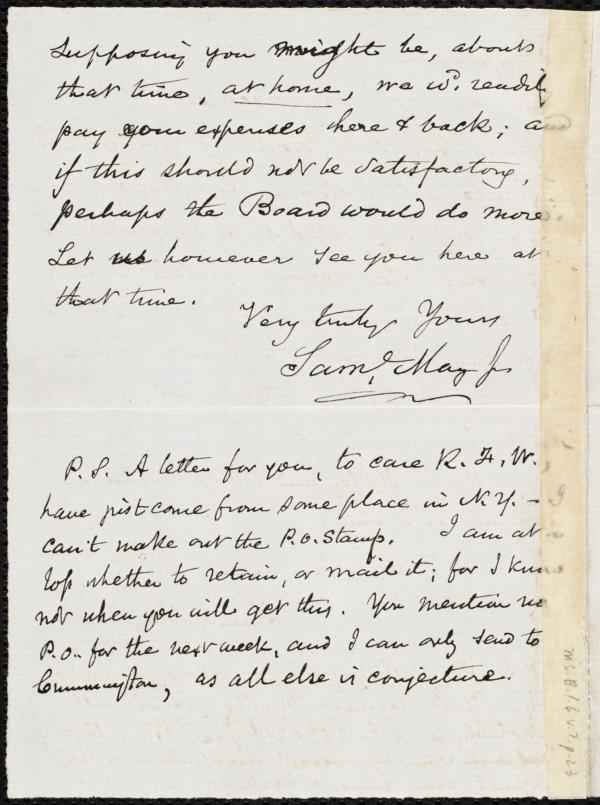 Supposing you might be, about
that time, at home, we wd. readily
pay your expenses here & back; and
if this should not be satisfactory,
perhaps the Board would do more.
Let us however see you here at
that time.
Very truly Yours
Saml. May Jr
P.S. A letter for you, to care R. F. W.
have just come from some place in N.Y. -
can't make out the P.O. Stamp. I am at
loss whether to retain, or mail it; for I know
not when you will get this. You mention no
P.O. for the next week, and I can only send to
Cummington, as all else is conjecture.